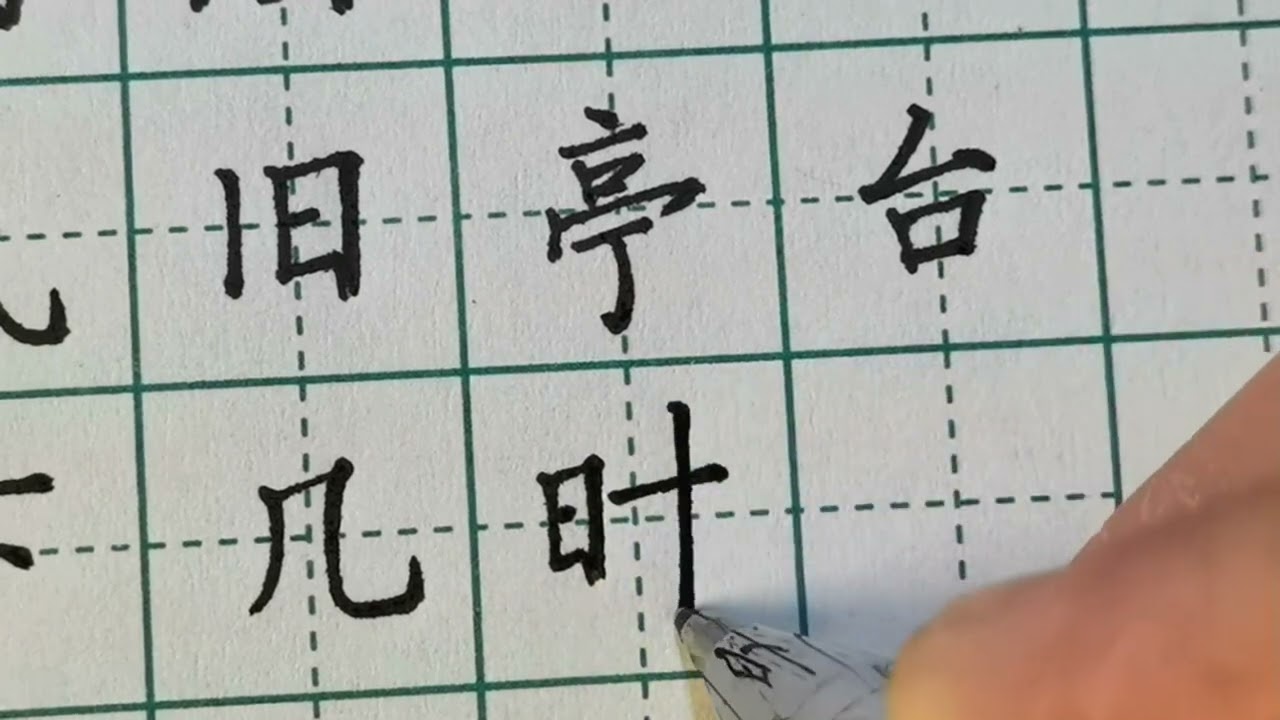 旧亭台
几时